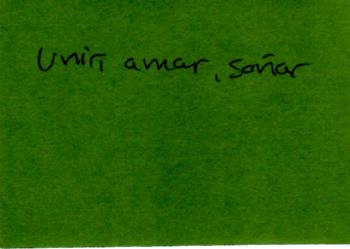 Unir, amar, soñar